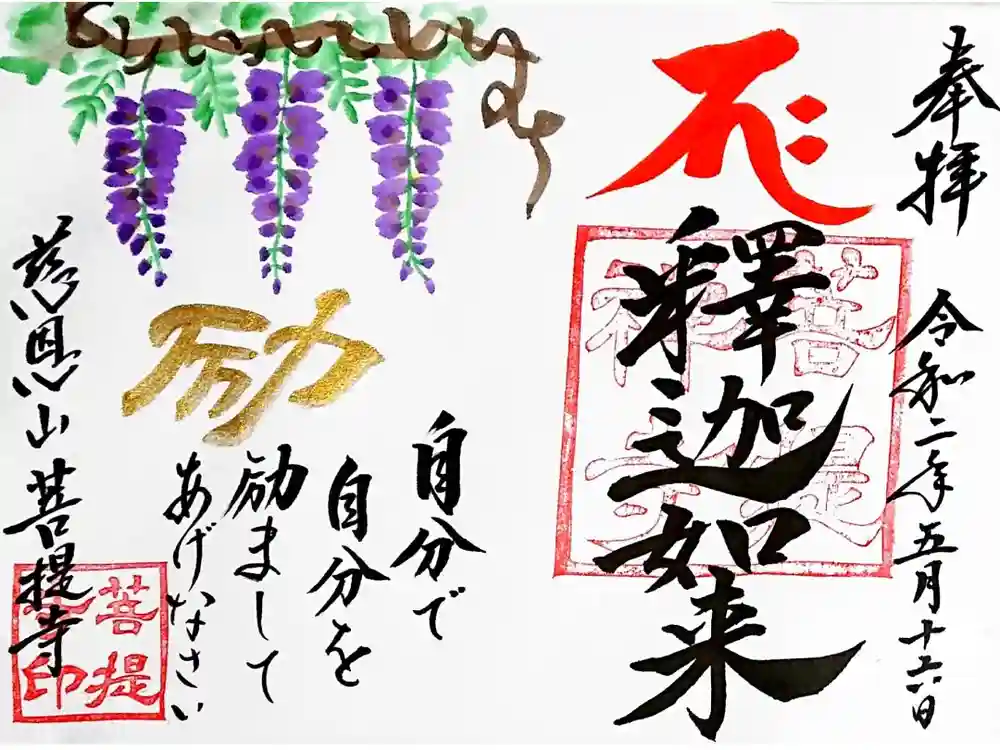 奉拝
令和二年五月十六日
釋迦如来
励
自分で
自分を
励まして
あげなさい
慈恩山菩提寺
菩提
印